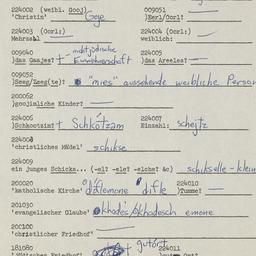 224002 (weibl. Gooj) Goje 009051
'Christin' ]Eerl/Oorl!
224003 (Oorl;) 224004 (Oorl;)
Mehrzahl weiblich:
009040 nichtjüdische 224005
]das Gaajes? Einwohnerschaft ]das Areeles?
009052
]Seez/Zeeg(te): "mies" aussehende weibliche Person
200052
]goojinliche Kinder?
224006 224007
]Schkootzim? Schkotzam Einzahl: scheitz
224008
'christliches Mädel' schikse
224009
ein junges Schicks... (-el? -ele? -elche? &c) schikselle - klein
200202 224010
'katholische Kirche' difle ]Tumme?
201030
'evangelischer Glaube' emone
200100
'christlicher Friedhof'
181080 gutort 224011